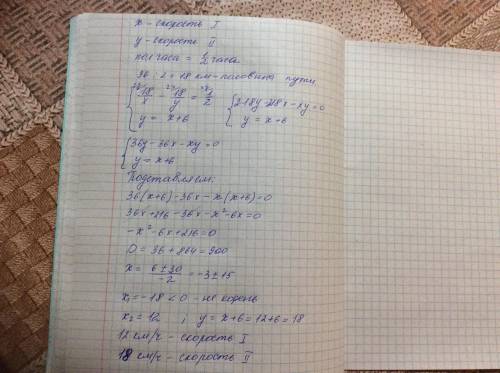 x - скорость I
y - скорость II
пол часа = 1/2 часа
36 : 2 = 18 км - половина пути
{ 18/x - 18/y = 1/2 { 2·18y - 2·18x - xy = 0
{ y = x+6 { y = x+6
{ 36y - 36x - xy = 0
{ y = x+6
Подставляем:
36(x+6) - 36x - x(x+6) = 0
36x + 216 - 36x - x² - 6x = 0
-x² - 6x + 216 = 0
D = 36 + 864 = 900
x = (6 ± 30)/(-2) = -3 ± 15
x₁ = -18 < 0 - не корень
x₂ = 12 ; y = x+6 = 12+6 = 18
12 км/ч - скорость I
18 км/ч - скорость II